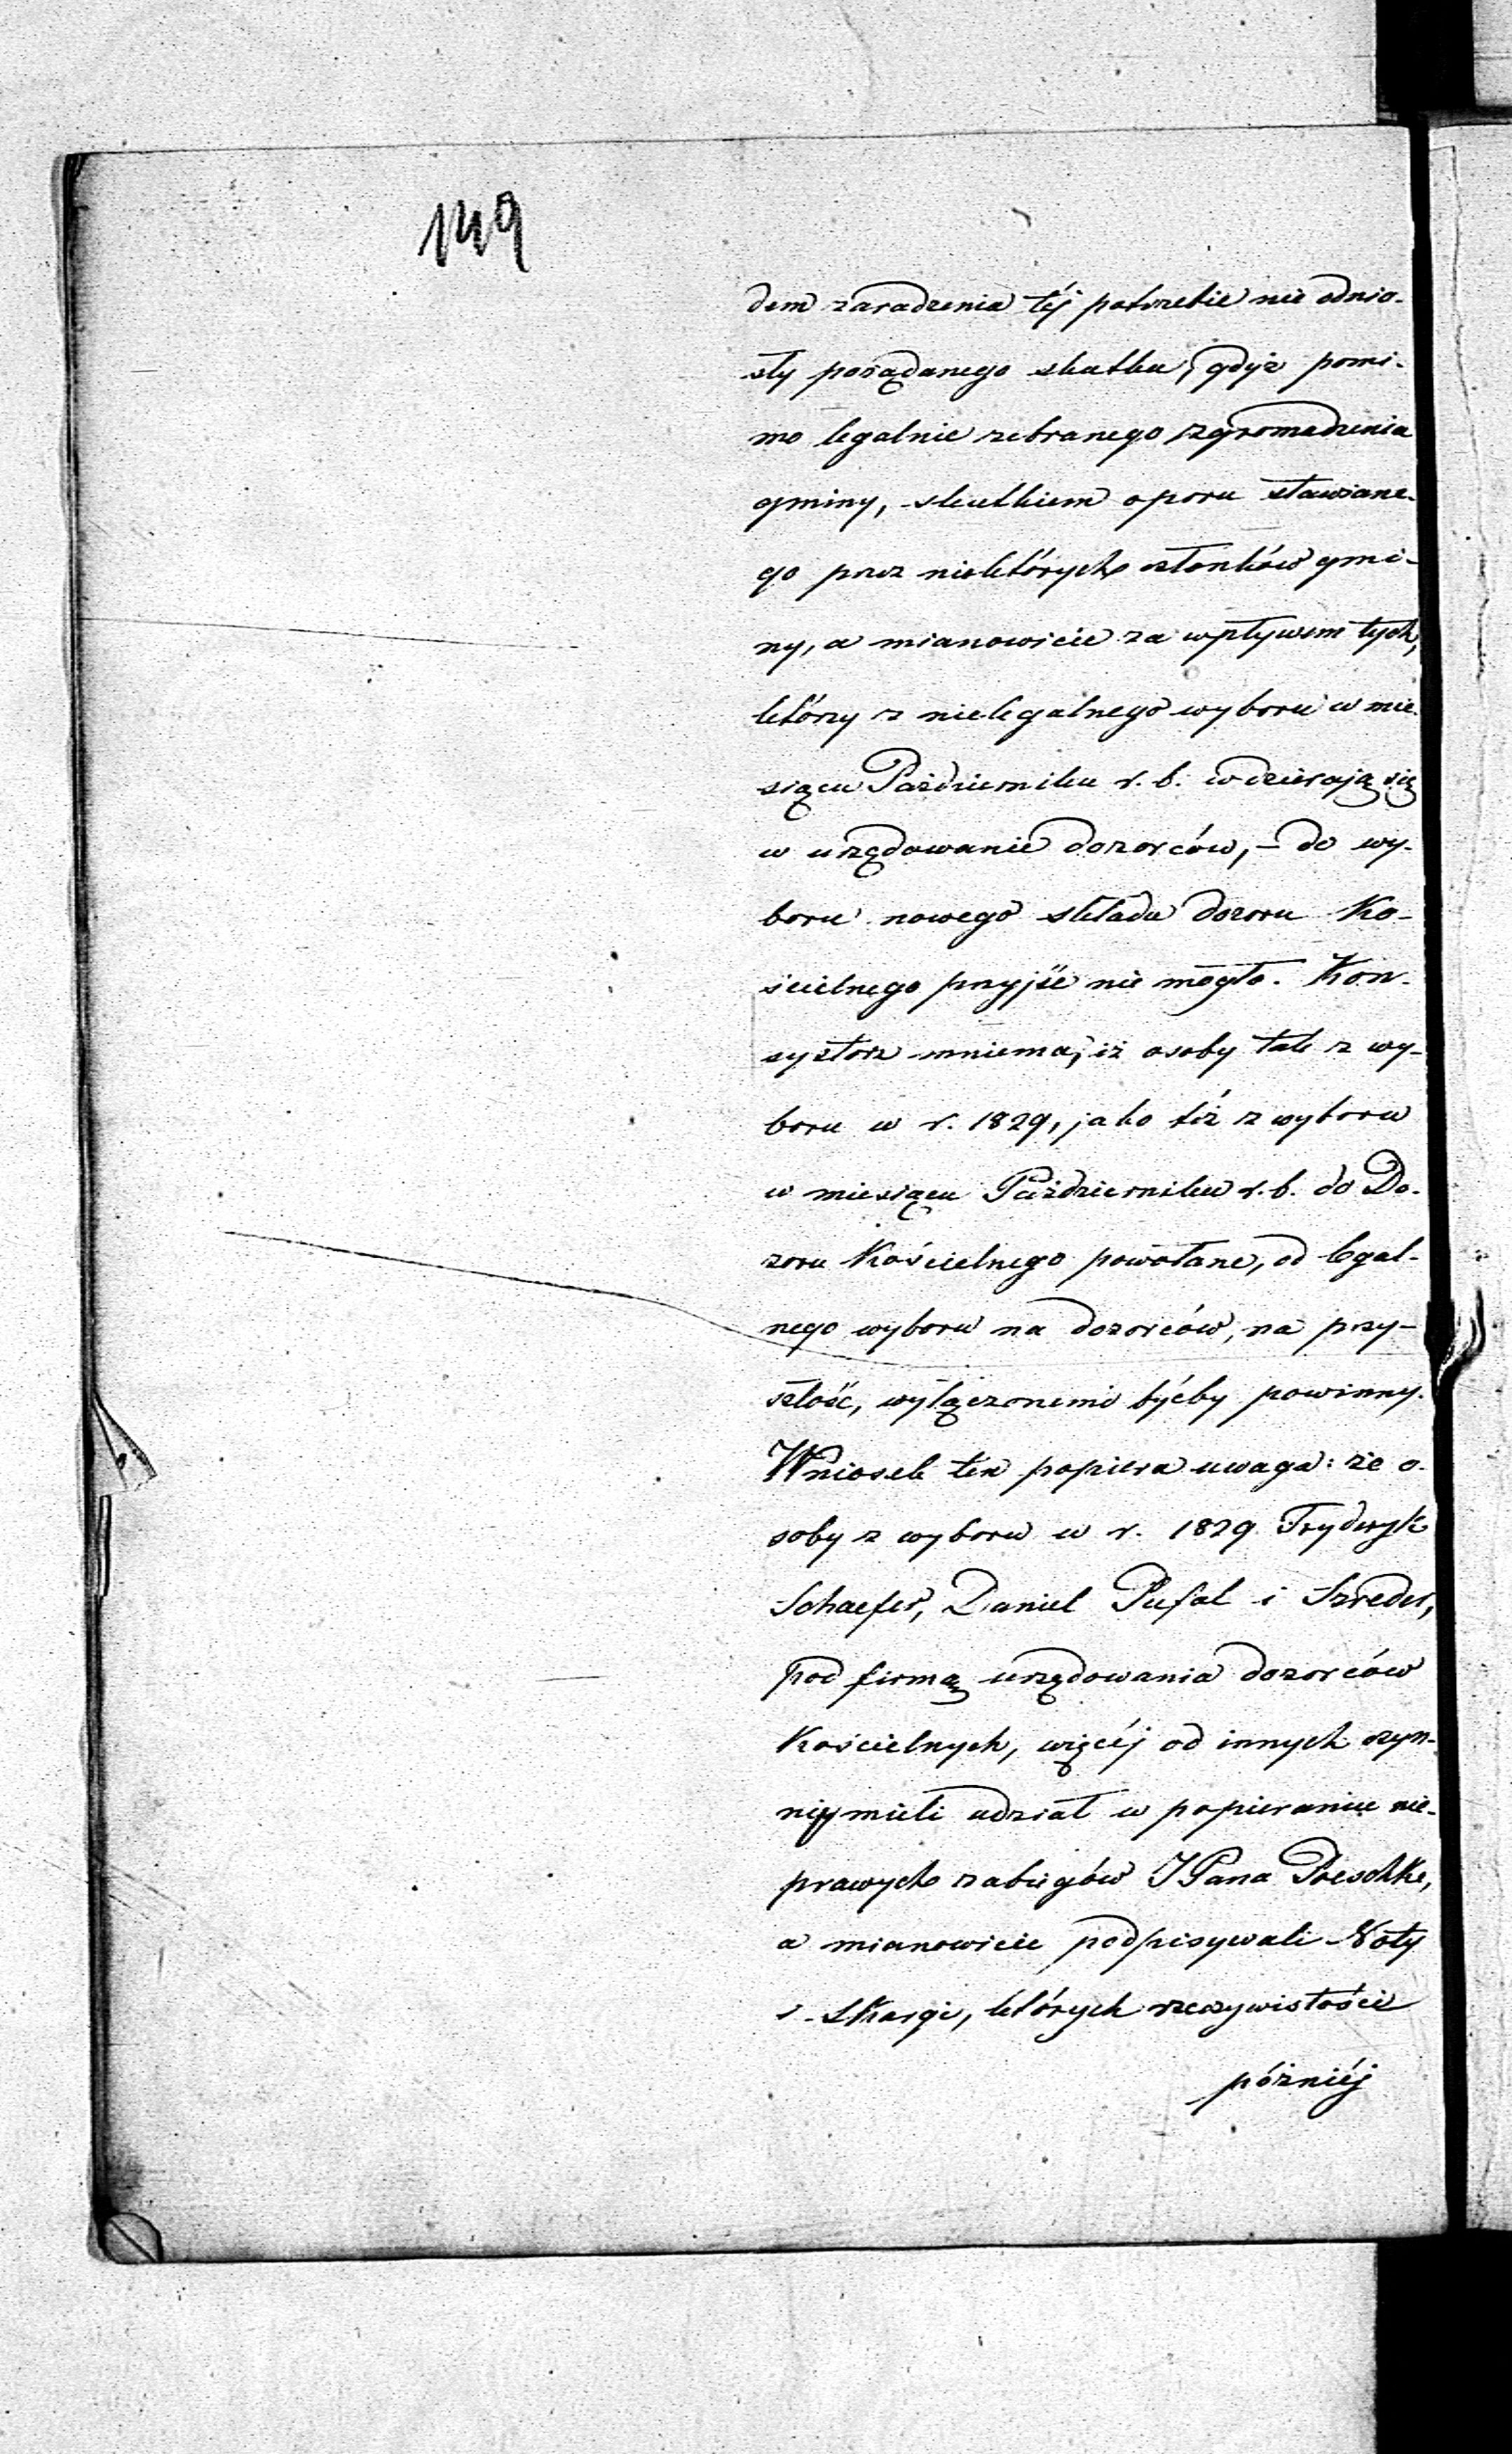 149
dem zaradzenia téj potrzebie nie odnio-
sły pożądanego skutku, gdyż pomi-
mo legalnie zebranego zgromadzenia
gminy, skutkiem oporu stawiane-
go przez niektórych członków gmi-
ny, a mianowicie za wpływem tych,
którzy z nielegalnego wyboru w mie-
siącu Październiku r. b. wdzierają się
w urzędowanie dozorców, – do wy-
boru nowego składu dozoru Ko-
ścielnego przyjść nie mogło. Kon-
systorz mniema, iż osoby tak z wy-
boru w r. 1829, jako téż z wyboru
w miesiącu Październiku r. b. do Do-
zoru Kościelnego powołane, od legal-
nego wyboru na dozorców, na przy-
szłość, wyłączonemi byćby powinny.
Wniosek ten popiera uwaga: że o-
soby z wyboru w r. 1829 Fryderyk
Schaefer, Daniel Pufal i Szreder,
pod firmą urzędowania dozorców
Kościelnych, więcéj od innych czyn-
ny mieli udział w popieraniu nie-
prawych zabiegów JPana Poeschke,
a mianowicie podpisywali Noty
i Skargi, których rzeczywistości
późniéj